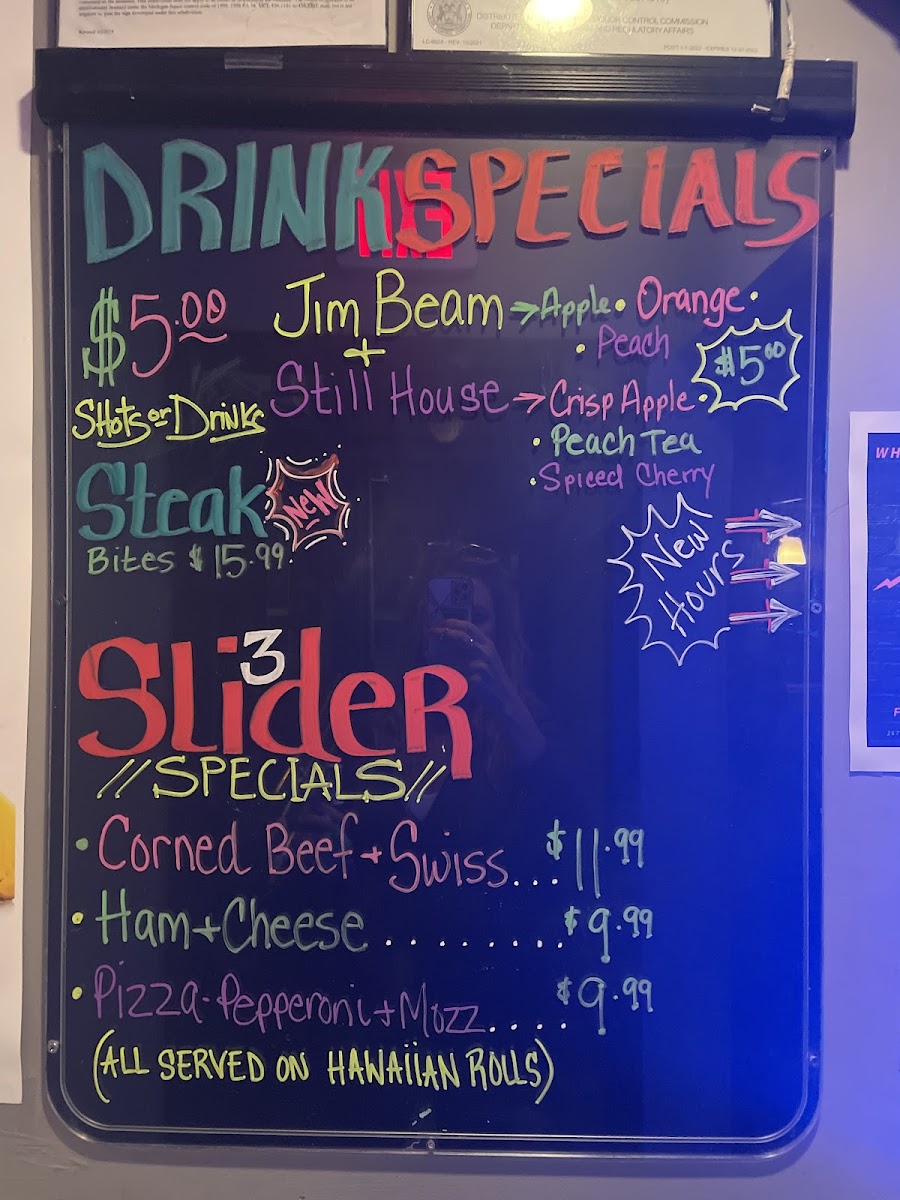 LIQUOR CONTROL COMMISSION
AND REGULATORY AFFAIRS
DRINK SPECIALS
$5.00 Jim Beam → Apple • Orange •
• Peach
$5.00
+
Shots or Drinks Still House → Crisp Apple •
• Peach Tea
• Spiced Cherry
Steak New
Bites $15.99
New
Hours
3
Slider
//SPECIALS//
• Corned Beef + Swiss... $11.99
• Ham + Cheese ......... $9.99
• Pizza - Pepperoni + Mozz..... $9.99
(ALL SERVED ON HAWAIIAN ROLLS)
WH